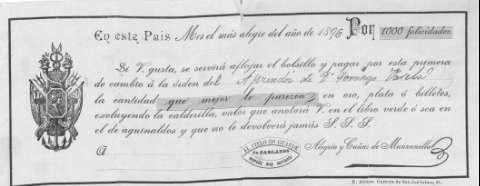 En este País Mes el más alegre del año de 1896 Por 1000 felicidades
Si V. gusta, se servirá aflojar el bolsillo y pagar por esta primera
de cambio á la órden del
la cantidad que mejor le parezca en oro, plata ó billetes,
escluyendo la calderilla, valor que anotará V. en el libro verde ó sea en
el de aguinaldos y que no le devolverá jamás S. S. S.
Á
Alegrías y Cañas de Manzanilla